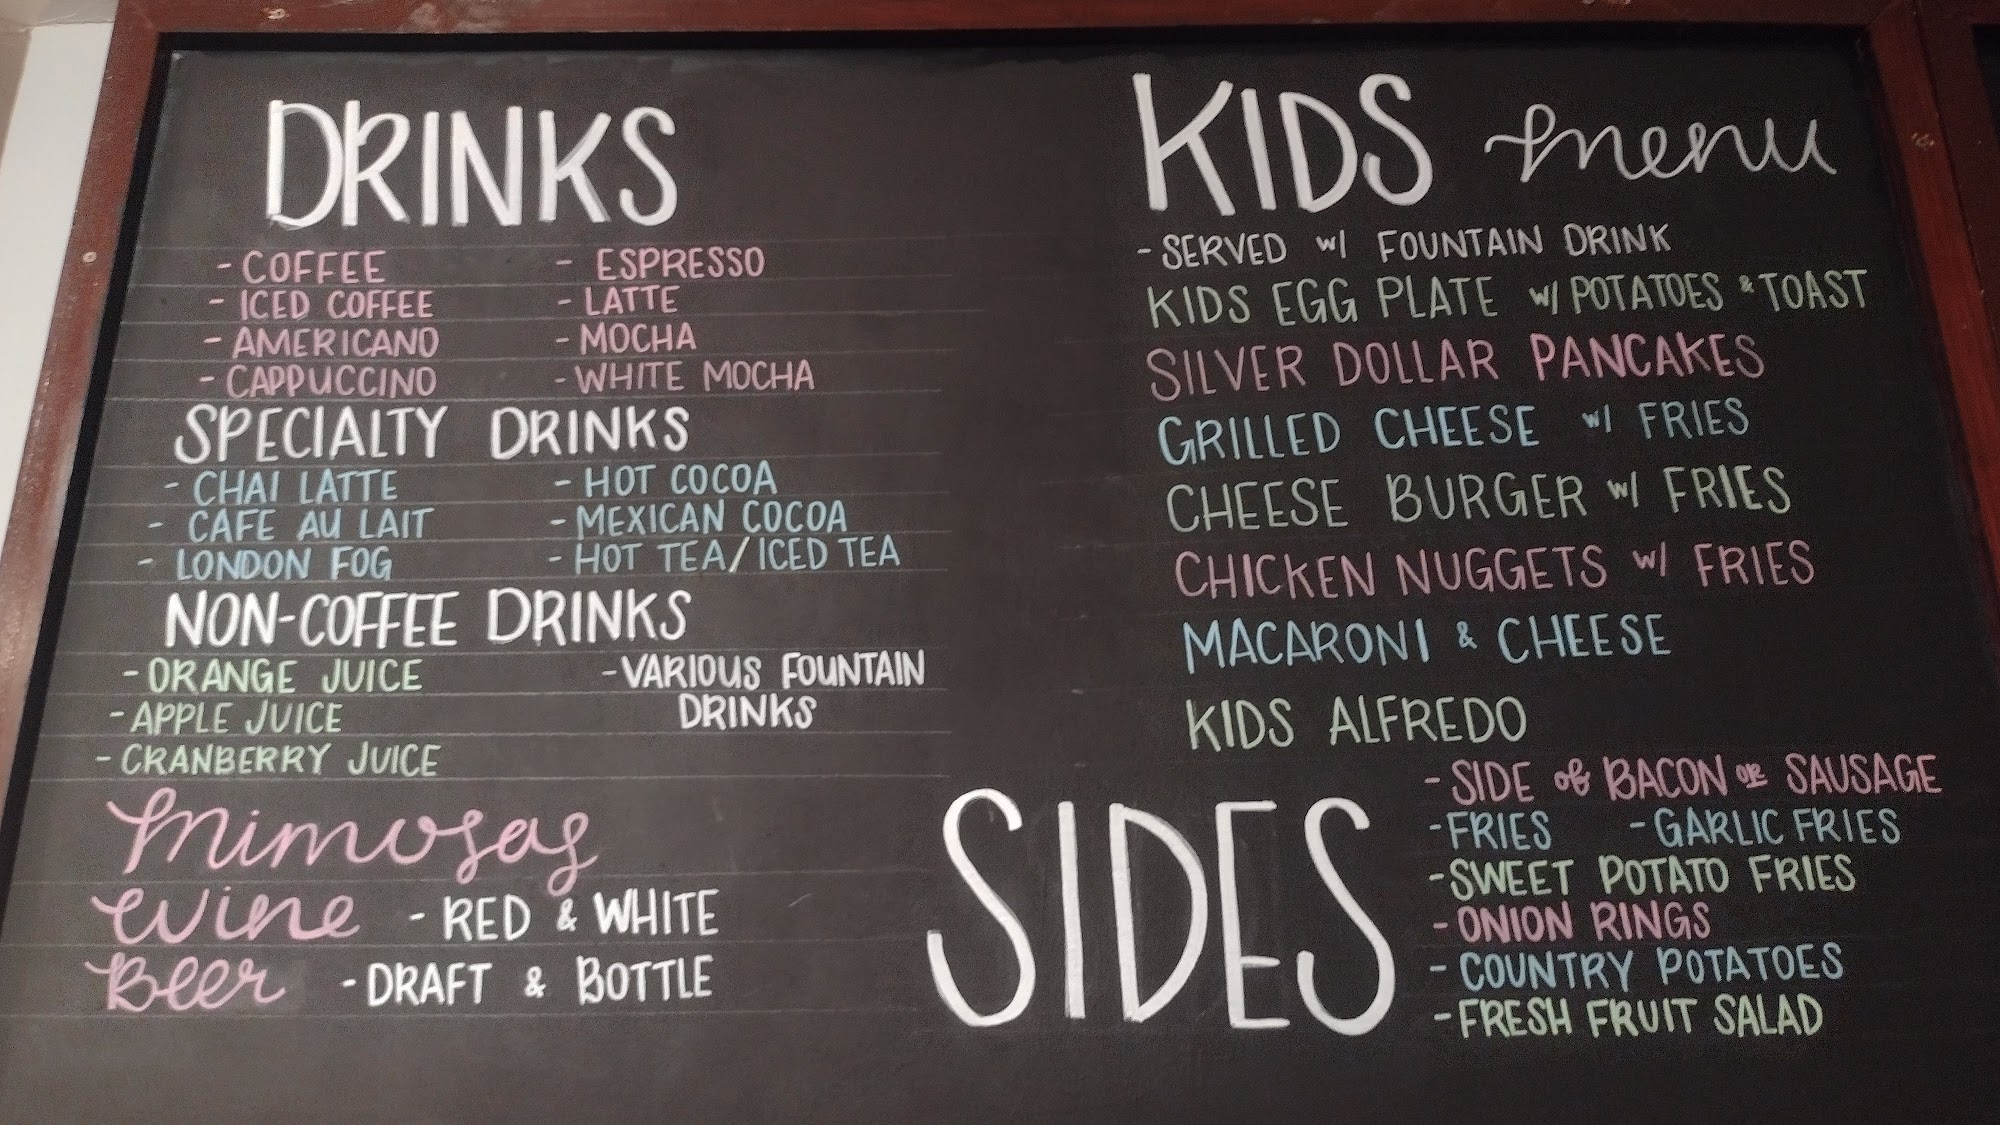 DRINKS
- COFFEE - ESPRESSO
- ICED COFFEE - LATTE
- AMERICANO - MOCHA
- CAPPUCCINO - WHITE MOCHA
SPECIALTY DRINKS
- CHAI LATTE - HOT COCOA
- CAFE AU LAIT - MEXICAN COCOA
- LONDON FOG - HOT TEA/ICED TEA
NON-COFFEE DRINKS
- ORANGE JUICE - VARIOUS FOUNTAIN
- APPLE JUICE DRINKS
- CRANBERRY JUICE
mimosas
wine - RED & WHITE
Beer - DRAFT & BOTTLE
KIDS menu
- SERVED w/ FOUNTAIN DRINK
KIDS EGG PLATE w/ POTATOES & TOAST
SILVER DOLLAR PANCAKES
GRILLED CHEESE w/ FRIES
CHEESE BURGER w/ FRIES
CHICKEN NUGGETS w/ FRIES
MACARONI & CHEESE
KIDS ALFREDO
SIDES
- SIDE of BACON OR SAUSAGE
- FRIES - GARLIC FRIES
- SWEET POTATO FRIES
- ONION RINGS
- COUNTRY POTATOES
- FRESH FRUIT SALAD